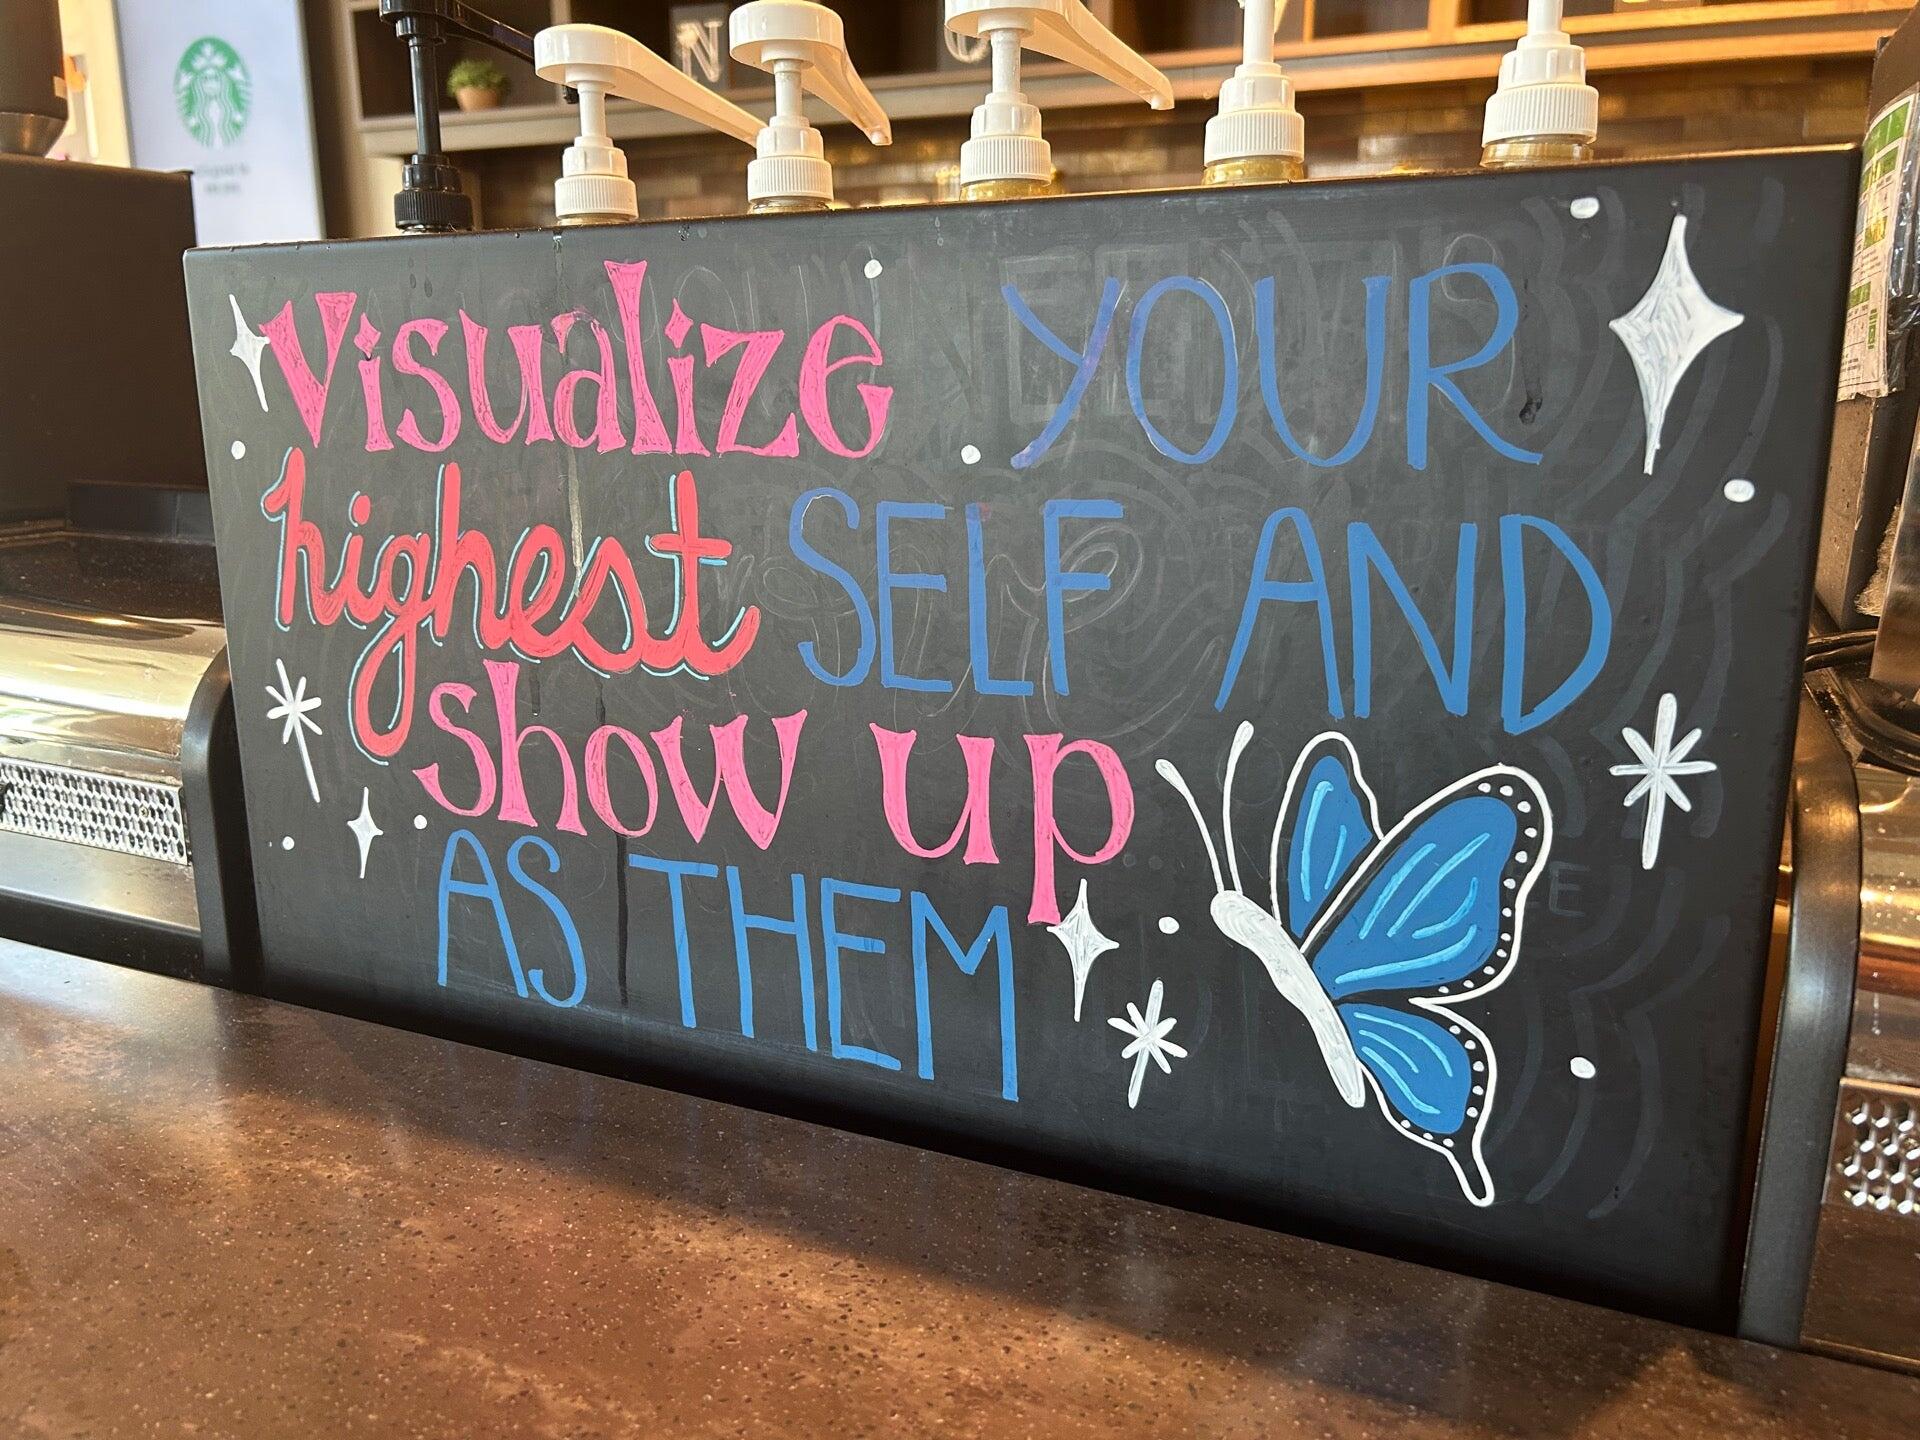 Visualize YOUR
highest SELF AND
show up
AS THEM